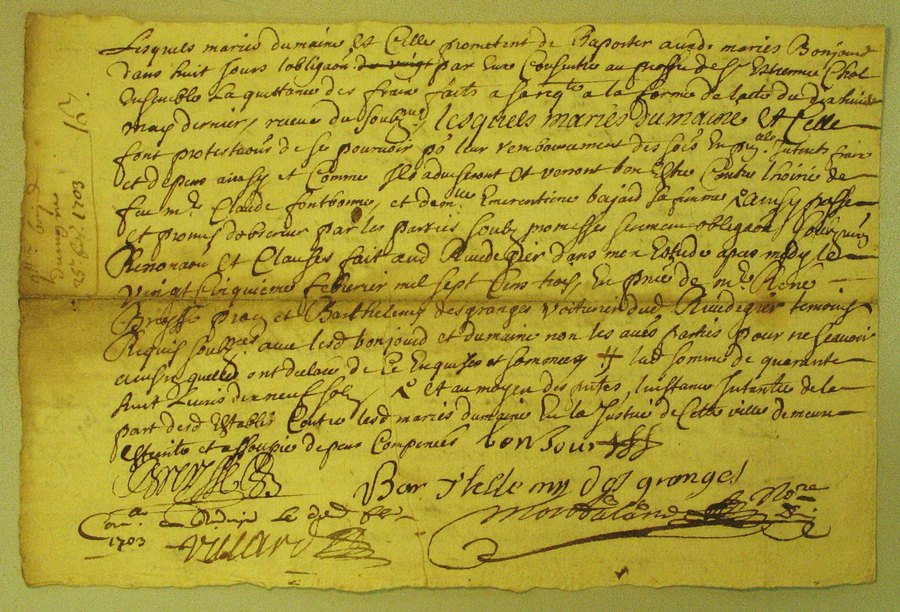 Lesquels mariés dumaine Et Celle prometent de Raporter auxd. mariés Bonjour
dans huit jours lobligaon par Eux Consentie au proffit de Sr Estienne
Ensemble La quittance des fraix faits a sa reqte a la forme de lacte du dixhuit
may dernier, receue du soubzné, lesquels mariés Dumaine Et Celle
font protestaons de se pourvoir po leur remboursement des
et depens aussy et Comme Ils adviseront et verront bon Estre Contre lhoirie de
feu me Claude fontbonne, et demlle Emerentiene bajard sa femme, Ainsy passé
et promis observer par les parties soubz promisses serement obligaon
Renonaon et Clauses fait aud Rivedegier dans mon Estude apres midy le
Vingt Cinquieme febvrier mil sept Cens trois, En pnce de me René
Brossy et Barthelemy desgranges voiturier dud Rivedegier temoins
Requis soubznés avec lesd bonjour et dumaine non les aues parties pour ne scavoir
ainsi quelles ont declaré de Ce Enquises et sommees ‡ lad somme de quarante
huit livres dix neuf sols et au moyen des pntes, linstance Intantée de la
part desd Establis Contre lesd mariés dumaine En la Justice de Cette ville demeure
Esteinte et assoupie depens Compensés bonjour
Brossy
Bartelle my des granges
Montaland Nore
Con.lle a Rivedegier le
1703
Vilard
25 febr 1703
dumaine